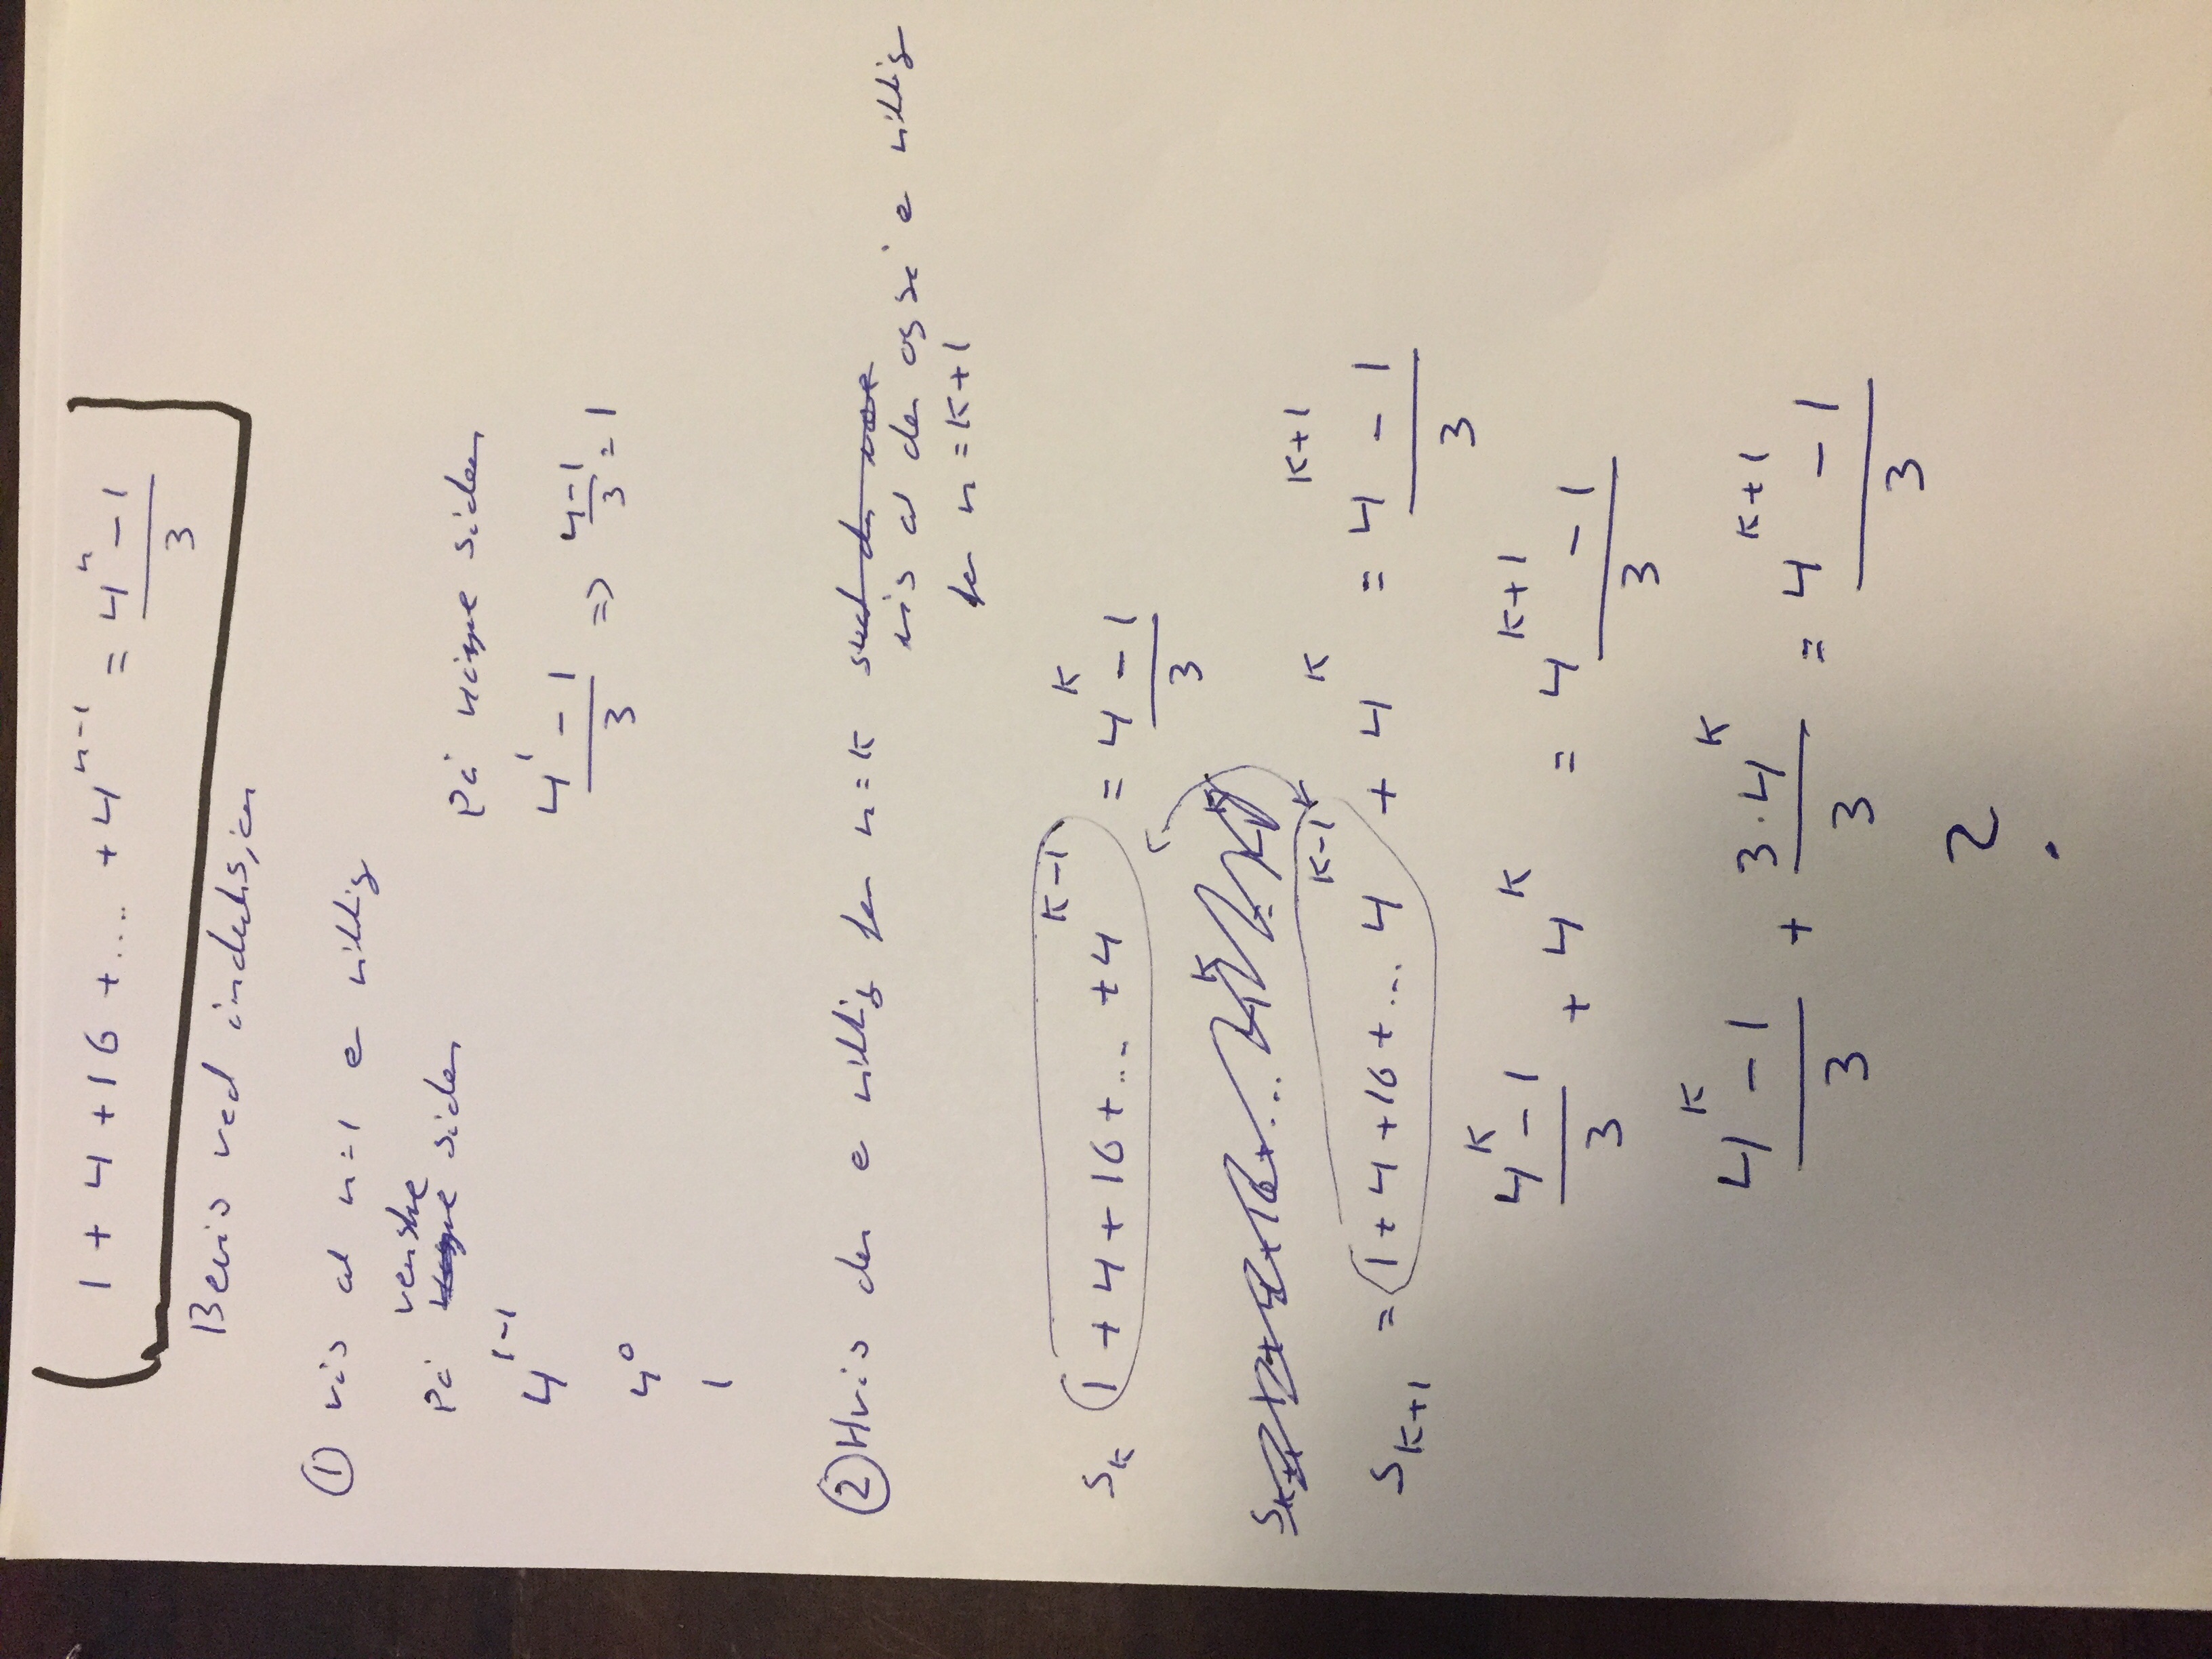 1 + 4 + 16 + .... + 4^{n-1} = \frac{4^n - 1}{3}
Bevis ved induksjon
① vis at n=1 e riktig
På venstre siden
4^{1-1}
4^0
1
På høyre siden
\frac{4^1 - 1}{3} => \frac{4-1}{3} = 1
② Hvis den e riktig for n=k
vis at den også e riktig
for n=k+1
S_k 1 + 4 + 16 + ... + 4^{k-1} = \frac{4^k - 1}{3}
S_{k+1} = 1 + 4 + 16 + ... 4^{k-1} + 4^k = \frac{4^{k+1} - 1}{3}
\frac{4^k - 1}{3} + 4^k = \frac{4^{k+1} - 1}{3}
\frac{4^k - 1}{3} + \frac{3 \cdot 4^k}{3} = \frac{4^{k+1} - 1}{3}
?